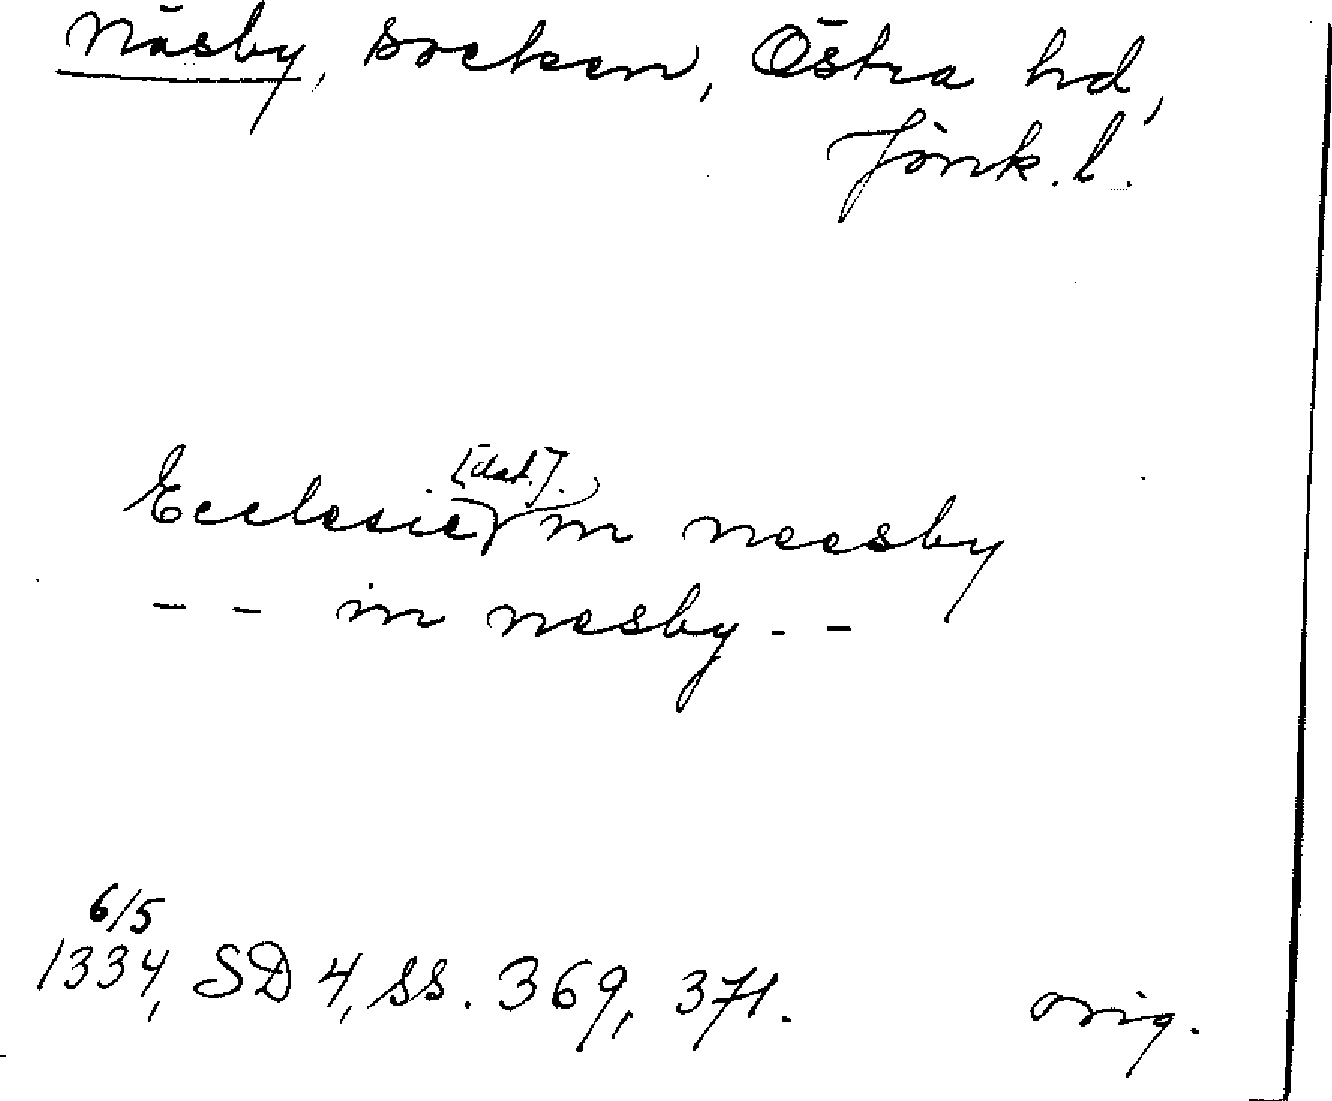 Näsby, socken, Östra hd,
Jönk. l.
Ecclesie [dat.]. in neesby
- - in nesby - -
6/5
1334, SD 4, ss. 369, 371. orig.